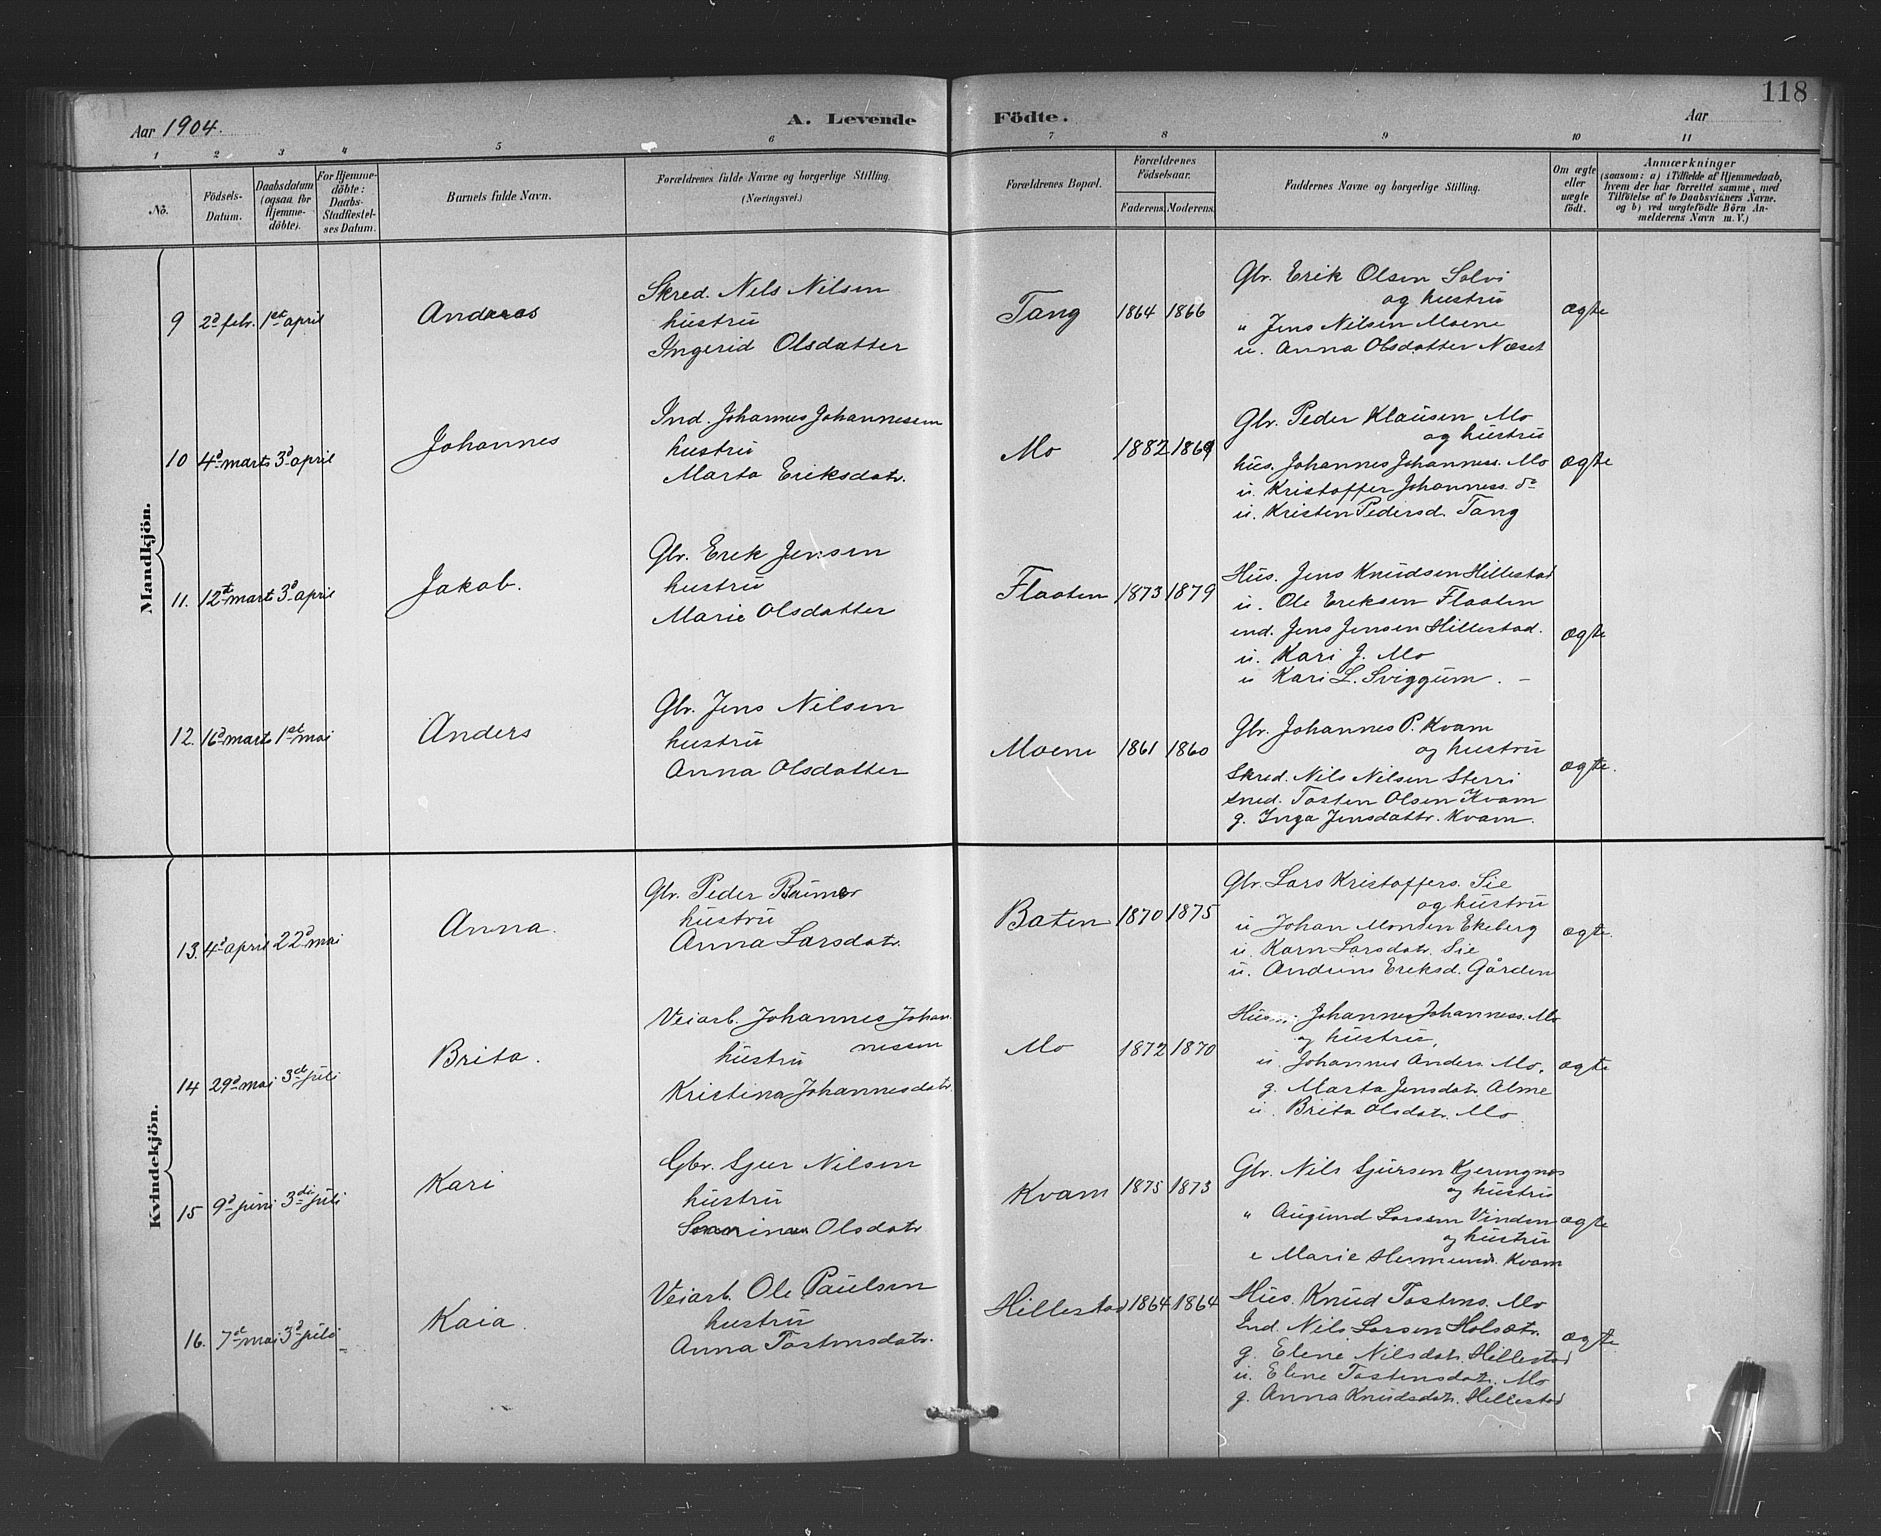 118
Aar 1904.
A. Levende Födte.
Aar
1 2 3 4 5 6 7 8 9 10 11
No.
Födsels-Datum.
Daabsdatum (ogsaa for Hjemme-döbte).
For Hjemme-döbte: Daabs-Stadfæstel-ses Datum.
Barnets fulde Navn.
Forældrenes fulde Navne og borgerlige Stilling. (Næringsvei.)
Forældrenes Bopæl.
Forældrenes Födselsaar.
Faderens. Moderens.
Faddernes Navne og borgerlige Stilling.
Om ægte eller uægte födt.
Anmærkninger
(saasom: a) i Tilfælde af Hjemmedaab, hvem der har forrettet samme, med Tilföielse af to Daabsvidners Navne. og b) ved uægtefödte Börn An-melderens Navn m. V.)
Mandkjön.
9 2d febr. 1st april
Andreas
Skred. Nels Nilsen
hustru
Ingerid Olsdatter
Tang 1864 1866
Gbr. Erik Olsen Solvi
og hustru
" Jens Nilsen Moene
u. Anna Olsdatter Næset
ægte
10 4d marts 3d april
Johannes
Ind. Johannes Johannessen
hustru
Marta Eriksdatr.
Mo 1882 1869
Gbr. Peder Klausen Mo
og hustru
hus. Johannes Johanness. Mo
u. Kristoffer Johanness. do
u. Kristen Pedersd. Tang
ægte
11. 12t marts 3d april
Jakob.
Gbr. Erek Jensen
hustru
Marie Olsdatter
Flaaten 1873 1879
Hus. Jens Knudsen Hillestad
u. Ole Eriksen Flaaten
ind. Jens Jensen Hillestad.
u. Kari J. Mo
u Kari L. Sviggum. -
ægte
12. 16d marts 1st mai
Anders
Gbr. Jens Nilsen
hustru
Anna Olsdatter
Moene 1861 1860
Gbr. Johannes P. Kvam
og hustru
Skred. Nils Nilsen Sterri
Sned. Tosten Olsen Kvam
g. Inga Jensdattr. Kvam.
ægte.
Kvindekjön.
13. 4d april 22d mai
Anna.
Gbr. Peder
hustru
Anna Larsdatr.
Baten 1870 1875
Gbr. Lars Kristoffers. Sie
og hustru
u Johan Monsen Ekeberg
u. Karn Larsdatr. Sie
u. Andrina Ereksd. Gården
ægte.
14 29d mai 3di juli
Brita.
Veiarb. Johannes Johan
nessen
hustru
Kristina Johannesdatr
Mo 1872 1870
Hus. Johannes Johanness. Mo
og hustru,
u. Johannes Anders. Mo.
g. Marta Jensdatr. Alme
u. Brita Olsdatr. Mo.
ægte
15 9d juni 3di juli
Kari
Gbr. Sjur Nilsen
hustru
Olsdatr
Kvam 1875 1873
Gbr. Nils Sjursen Kjeringnes
og hustru
" Augund Larsen Vinden
og hustru
Marie Hermunds. Kvam
ægte
16. 7de mai 3d juli
Kaia.
Veiarb. Ole Paulsen
hustru
Anna Tostensdatr.
Hillestad 1864 1864
Hus. Knud Tostens. Mo
Ind. Nils Larsen Holsætr.
g. Elene Nilsdatr. Hillestad
u. Elene Tostensdatr. Mo
g. Anna Knudsdatr. Hillestad
ægte.